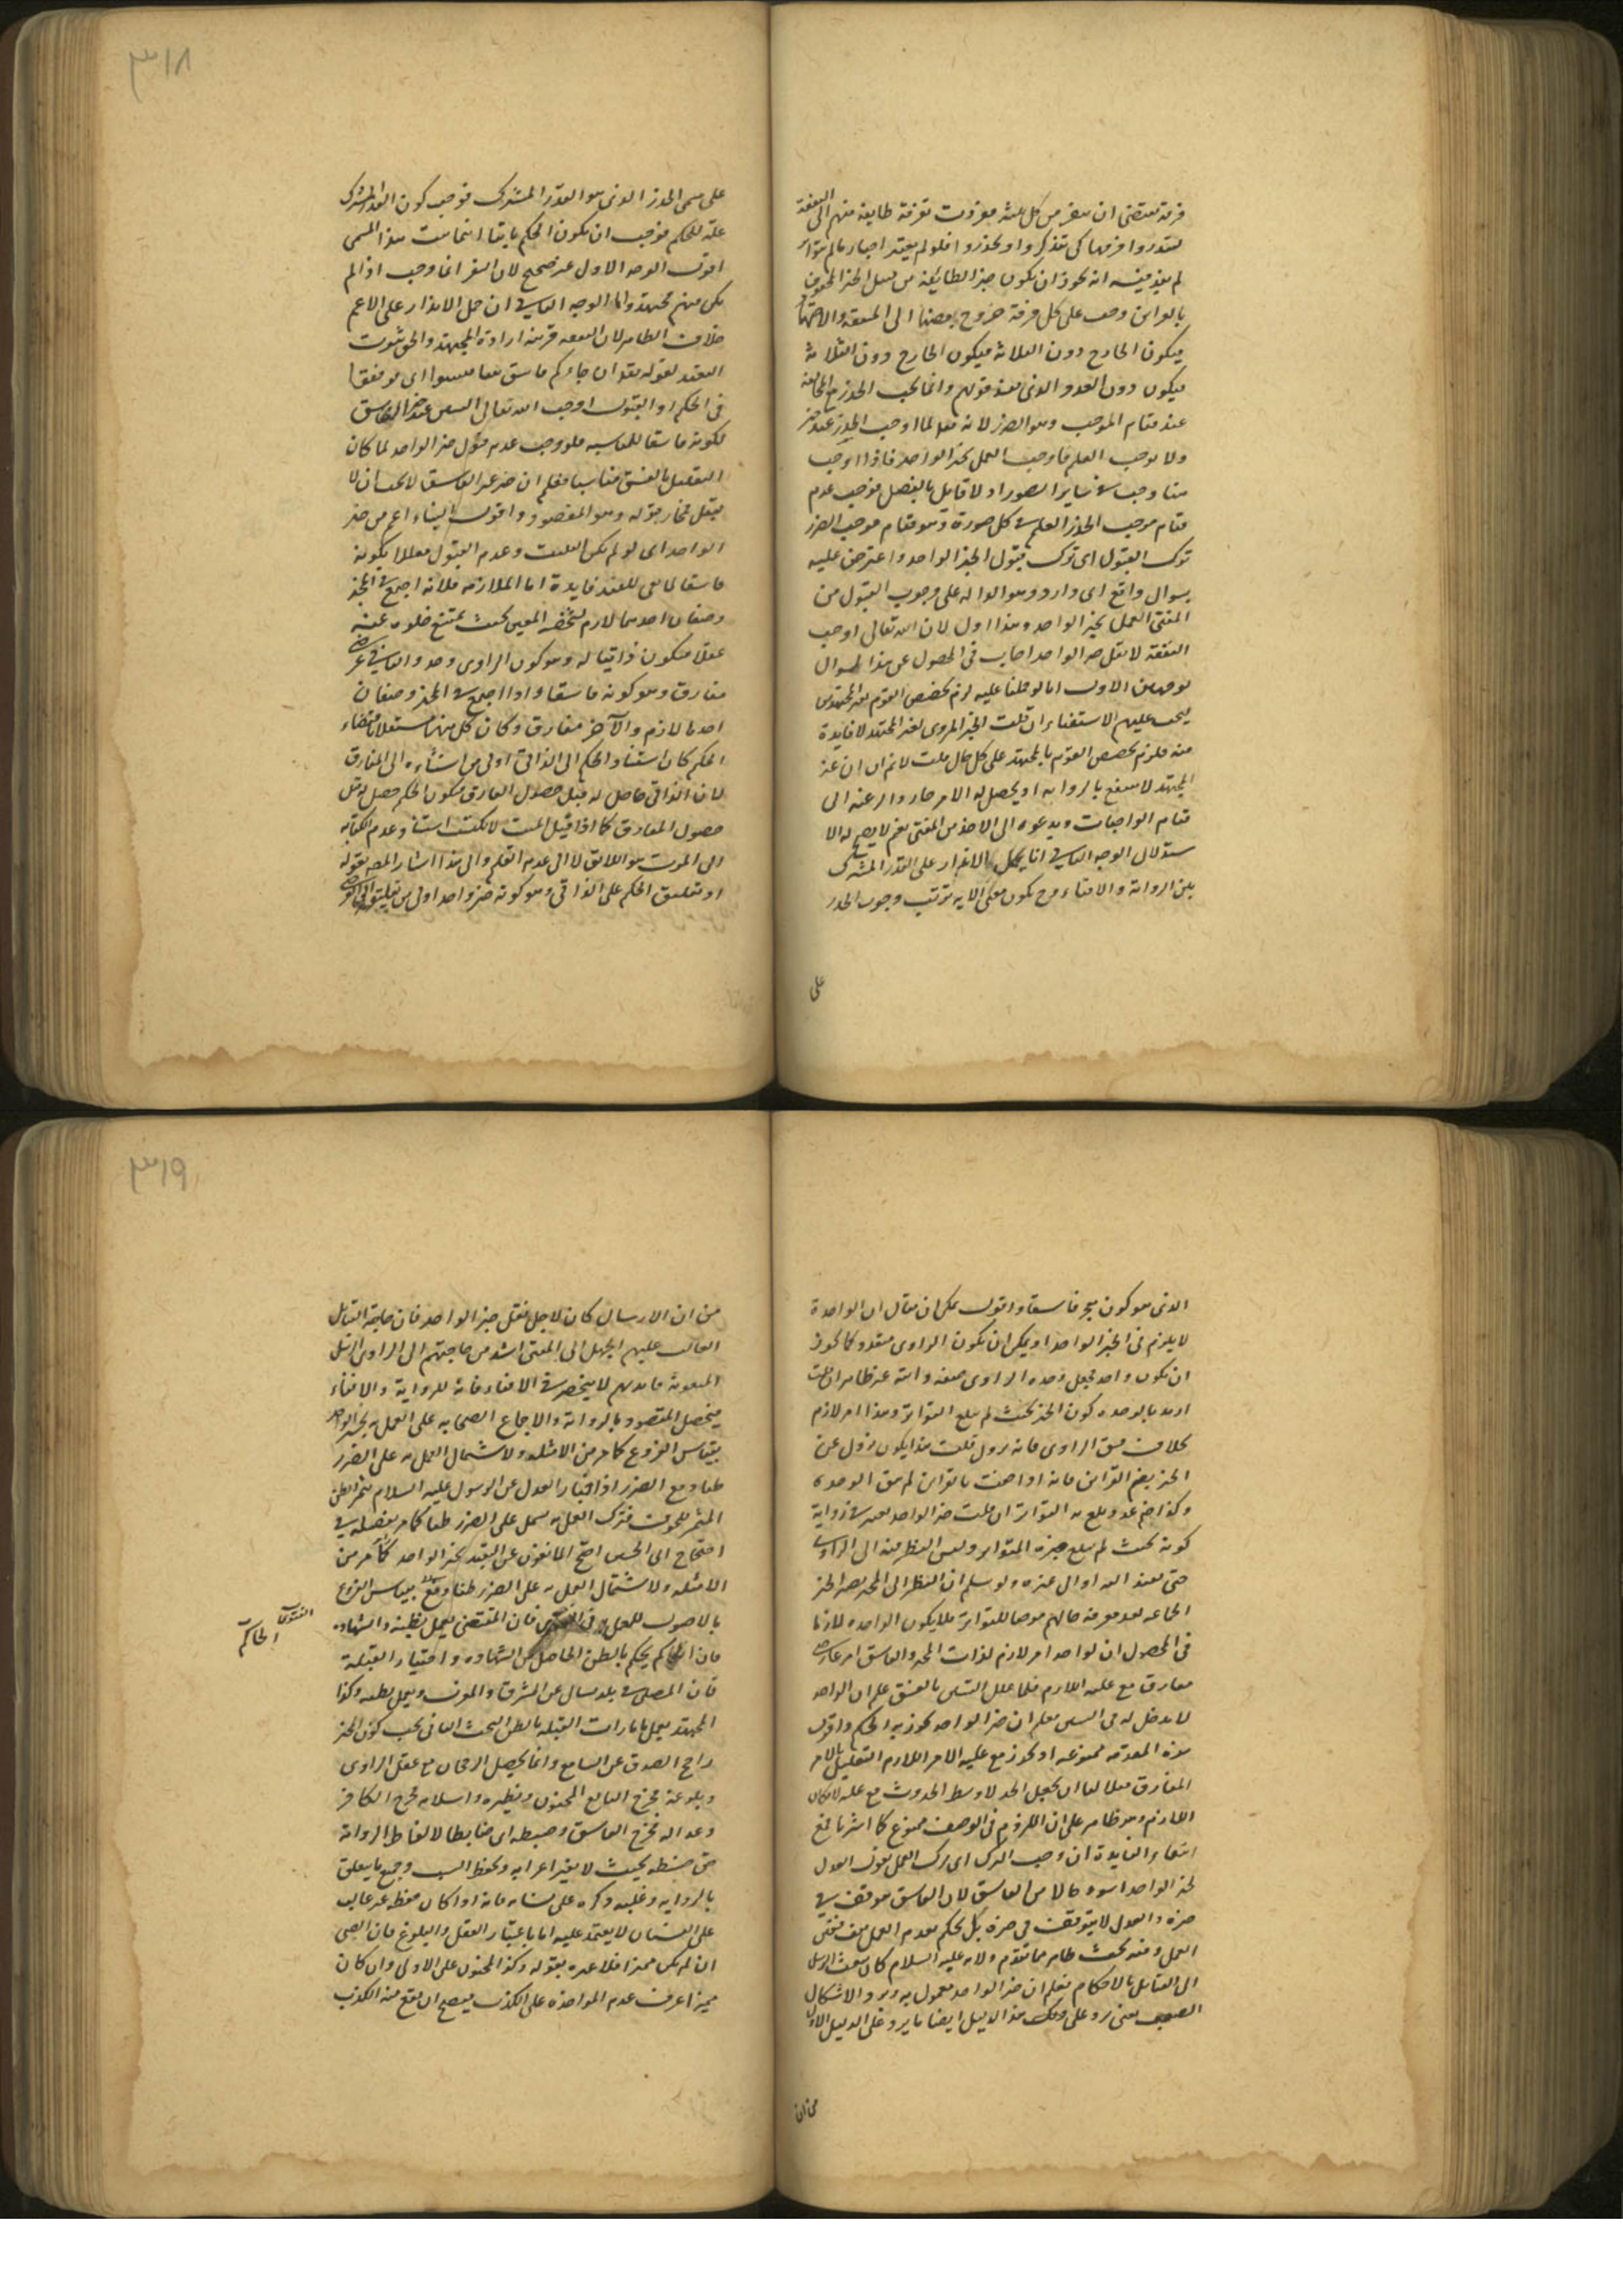 فرقة تقتضى ان ينفر من كل ثلثة طايفة منهم الى التفقه
لينذروا قومهم كى يتذكروا او يحذروا فلو لم يعتبر اخبار ما لم يتواتر
لم يفد فيه انه يجوز ان يكون خبر الطايفة من قبيل الخبر المحفوف
بالقراين وجب على كل فرقة خروج بعضها الى التفقه والاجتهاد
فيكون الخارج دون الثلاثة فيكون الخارج دون الثلاثة
فيكون دون العدد الذى يفيد قولهم وانما يجب الحذر
عند قيام الموجب وهو الضرر لانه تعالى لما اوجب الحذر عند خبر
ولا يوجب العلم فاوجب العمل بخبر الواحد فاذا اوجب
هنا وجب فى ساير الصور اذ لا قايل بالفصل فوجب عدم
قيام موجب الحذر العلم فى كل صورة وهو قيام موجب الضرر
ترك القبول اى ترك قبول الخبر الواحد واعترض عليه
بسوال واقع اى وارد وهو الدلالة على وجوب القبول من
المفتى العمل بخبر الواحد وهذا اول لان الله تعالى اوجب
التفقه لا نقل خبر الواحد اجاب فى المحصول عن هذا السوال
بوجهين الاول انا لو حملنا عليه لزم تخصيص القوم بغير المجتهدين
يجب عليهم الاستفتاء ان قلت الخبر المروى لغير المجتهد لا فايدة
منه فلزم تخصيص القوم بالمجتهد على كل حال قلت لا نم ان غير
المجتهد لا ينتفع بالرواية او يحصل له الامر
قيام الواجبات ويدعوه الى الاخذ من المفتى نعم لا يصح له الا
ستدلال الوجه الثانى انا نحمل الانذار على القدر المشترك
بين الرواية والافتاء وح يكون معنى الاية ترتب وجوب الحذر
على
٣١٨
على مسمى الحذر الذى هو القدر المشترك فوجب كون القدر المشترك
علة للحكم فوجب ان يكون الحكم ثابتا اينما ثبت هذا المسمى
اقول الوجه الاول غير صحيح لان النفر انما وجب اذ لم
يكن منهم مجتهد واما الوجه الثانى ان حمل الانذار على الاعم
خلاف الظاهر لان التفقه قرينة ارادة المجتهد والحق ثبوت
التعبد لقوله تعالى ان جاءكم فاسق بنبا فتبينوا اى توقفوا
فى الحكم او القبول اوجب الله تعالى التبين عند خبر الفاسق
لكونه فاسقا للمناسبة فلو وجب عدم قبول خبر الواحد لما كان
التعليل بالفسق مناسبا فعلم ان خبر غير الفاسق لا يجب ان لا
يقبل فجاز قبوله وهو المقصود واقول البناء اعم من خبر
الواحد اى لو لم يكن التثبت وعدم القبول معللا بكونه
فاسقا لما بقى للتعبد فايدة اما الملازمة فلانه اجتمع فى الخبر
وصفان احدهما لازم لشخصه المعين بحيث يمتنع خلوه عنه
عقلا فيكون ذاتيا له وهو كون الراوى وحده والثانى عرضى
مفارق وهو كونه فاسقا واذا اجتمع فى الخبر وصفان
احدهما لازم والآخر مفارق وكان كل منهما مستقلا باقتضاء
الحكم كان اسناد الحكم الى الذاتى اولى من اسناده الى المفارق
لان الذاتى حاصل له قبل حصول المفارق فيكون الحكم حصل قبل
حصول المفارق كما اذا قيل الميت لا يكتب اسناد عدم الكتابة
الى الموت هو اللائق لا الى عدم القلم والى هذا اشار المص بقوله
او تعليق الحكم على الذاتى وهو كونه خبر واحد اولى من تعليقه الى العرضى
الذى هو كون المخبر فاسقا واقول يمكن ان يقال ان الواحدة
لا يلزم فى الخبر الواحد او يمكن ان يكون الراوى متعدد كما يجوز
ان يكون واحد فجعل وحده الراوى صفة ذاتية غير ظاهر ان قلت
اريد بالوحدة كون الخبر بحيث لم يبلغ التواتر وهذا امر لازم
بخلاف فسق الراوى فانه يزول قلت هذا يكون يزول عن
الخبر بضم القراين فانه اذا احتفت بالقراين لم يبق الوحدة
وكذا ضم عدد يبلغ به التواتر ان قلت خبر الواحد يعتبر فى رواية
كونه بحيث لم يبلغ خبره المتواتر وليس النظر فيه الى الراوى
حتى يفيد العدد اوال غيره ولو سلم ان النظر الى المخبر يصير الخبر
الجماعة بعد معرفة حالهم موجبا للتواتر فلا يكون الواحدة لازما
فى المحصول ان الواحد امر لازم لذات المخبر والفاسق امر عارض
مفارق مع علية اللازم فلما علل التبين بالفسق علم ان الواحد
لا مدخل له فى التبين فعلم ان خبر الواحد يجوز به الحكم واقول
هذه المقدمة ممنوعة اذ يجوز مع علية الامر اللازم التعليل بالامر
المفارق مثلا لنا ان نجعل الحد الاوسط الحدوث مع علية الامكان
اللازم وهو ظاهر على ان اللزوم فى الوصف ممنوع كما اشرنا فمنع
انتفاء الفايدة ان وجب الترك اى ترك العمل بقول العدل
لخبر الواحد اسوء حالا من الفاسق لان الفاسق موقف فى
خبره والعدل لا يتوقف فى خبره بل يحكم بعدم العمل
العمل وفيه بحث ظاهر مما تقدم ولانه عليه السلام كان يبعث الرسل
الى القبايل بالاحكام فعلم ان خبر الواحد معمول به ويرد الاشكال
الصعب يعنى يرد على ذلك هذا الدليل ايضا ما يرد على الدليل الاول
من ان
٣١٩
من ان الارسال كان لاجل نقل خبر الواحد فان حاجة القبايل
الغالب عليهم الجهل الى المفتى اشد من حاجتهم الى الراوى الرسل
المبعوثة فايدتهم لا ينحصر فى الافتاء فانه للرواية والافتاء
فيحصل المقصود بالرواية والاجماع الصحابة على العمل بخبر الواحد
بقياس الفروع كما مر من الامثلة ولاشتمال العمل به على الضرر
ظنا دفع الضرر اذ اخبار العدل عن الرسول عليه السلام يثمر الظن
المثمر للخوف فترك العمل به يشمل على الضرر ظنا كما مر تفصيله فى
احتجاج ابى الحسين احتج المانعون عن التعبد بخبر الواحد كما مر من
الامثلة ولاشتمال العمل به على الضرر ظنا بقياس الفروع
بالاصول للعمل به فى الفتوى فان المقتضى يعمل بظنه والشهادة
فان الحاكم يحكم بالظن الحاصل من الشهادة واختيار القبلة
فان المصلى فى بلد يسال عن الشرق والمغرب ويعمل بظنه وكذا
المجتهد يعمل بامارات القبلة بالظن البحث الثانى يجب كون الخبر
راجح الصدق عن السامع وانما يحصل الرجحان مع عقل الراوى
وبلوغه فخرج البالغ المجنون ونظيره واسلامه فخرج الكافر
وعدالته فخرج الفاسق وضبطه اى ضابطا لالفاظ الرواية
حق ضبطه بحيث لا يغير اعرابه وبحفظ السبب وجميع ما يتعلق
بالرواية وغلبة ذكره على نسيانه فانه اذا كان حفظه غير غالب
على النسيان لا يعتمد عليه اما باعتبار العقل والبلوغ فان الصبى
ان لم يكن مميزا فلا عبرة بقوله وكذا المجنون على الاولى وان كان
مميزا عرف عدم المواخذة على الكذب فيصح ان يقع منه الكذب
الفتوى
الحاكم